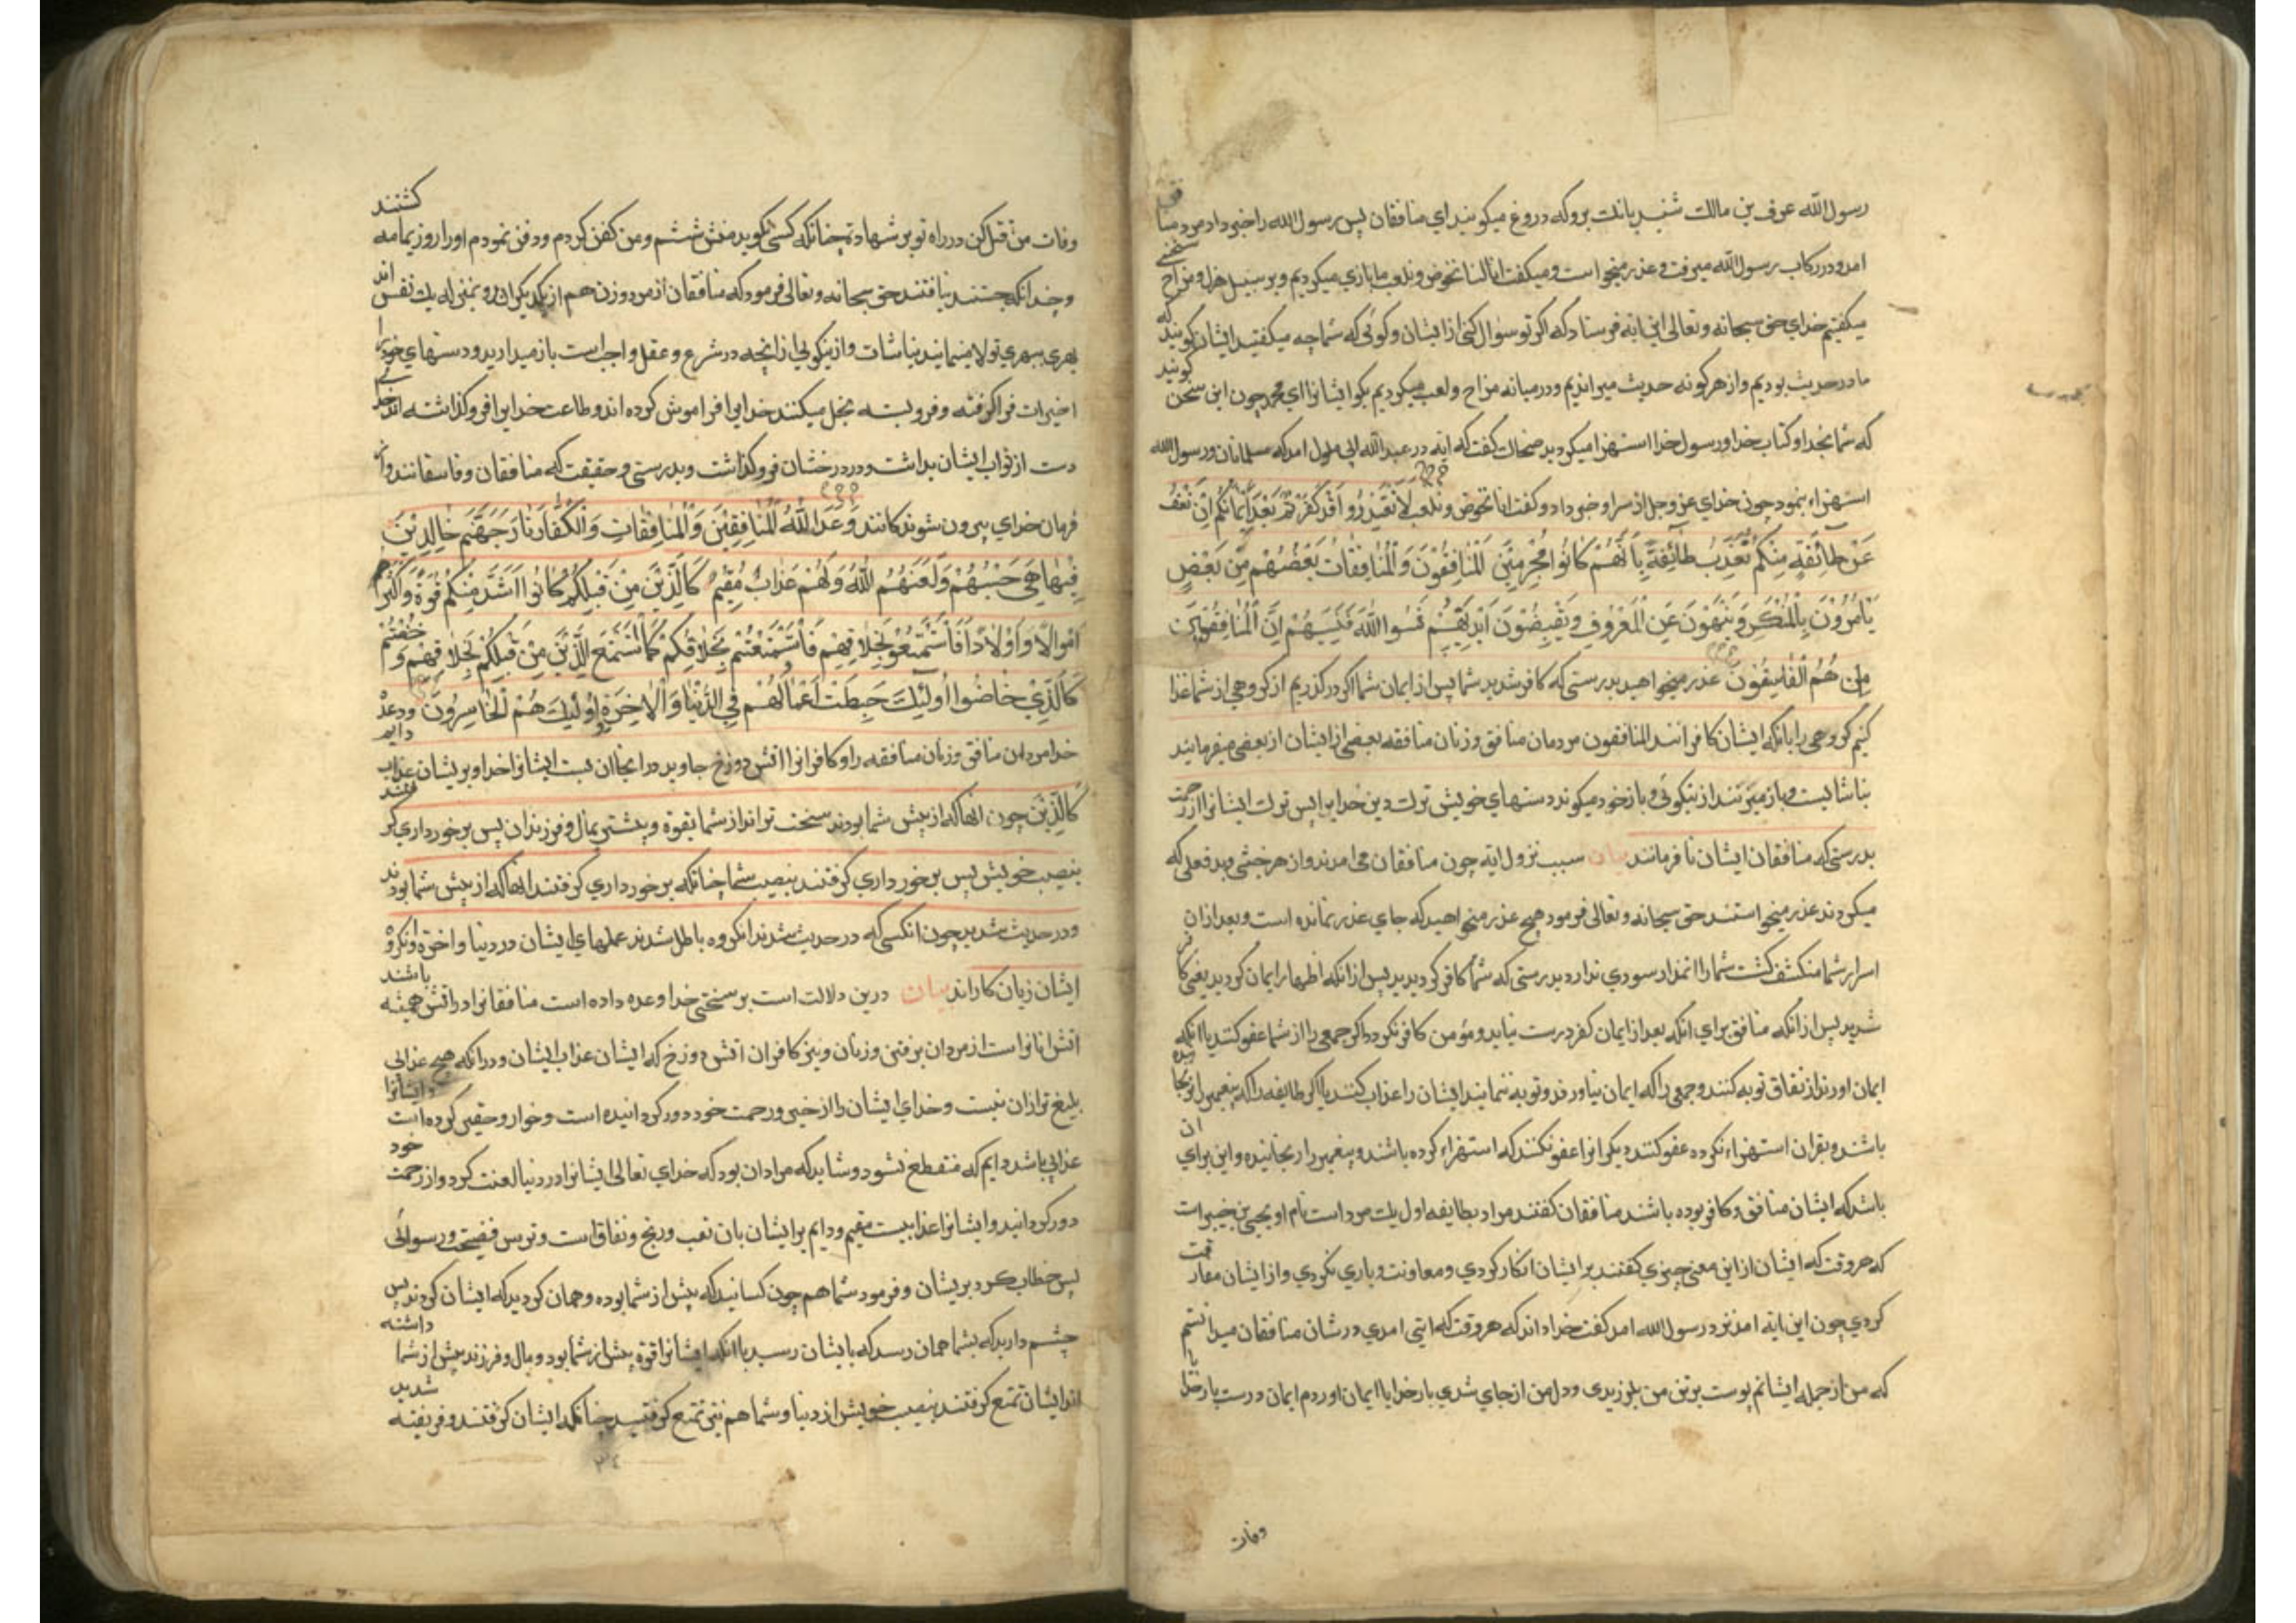 رسول الله عوف بن مالک شنید بانک برو که دروغ میکوئید ای منافقان پس رسول الله را خبر داد مرد منافق
امد و در رکاب رسول الله میرفت و عذر میخواست و میکفت انا کنا نخوض و نلعب ما بازی میکردیم و بر سبیل هزل و مزاح سخنی
میکفتیم خدای حق سبحانه و تعالی این ایه فرستاد که اکر تو سوال کنی از ایشان و کوئی که شما چه میکفتید ایشان کویند که
ما در حدیث بودیم و از هرکونه حدیث میراندیم و در میانه مزاح و لعب میکردیم بکو ایشانرا ای محمد چون این سخن کویند
که شما بخدا و کتاب خدا و رسول خدا استهزا میکردید ضحاک کفت که ایه در عبد الله ابی سلول امد که مسلمانان و رسول الله
استهزاء بنمود چون خدای عز و جل از سر او خبر داد و کفت انا نخوض و نلعب لَا تَعْتَذِرُوا قَدْ كَفَرْتُمْ بَعْدَ اِيْمَانِكُمْ اِنْ نَعْفُ
عَنْ طَآئِفَةٍ مِنْكُمْ نُعَذِّبْ طَآئِفَةً بِاَنَّهُمْ كَانُوا مُجْرِمِيْنَ اَلْمُنَافِقُوْنَ وَالْمُنَافِقَاتُ بَعْضُهُمْ مِنْ بَعْضٍ
يَأْمُرُوْنَ بِالْمُنْكَرِ وَيَنْهَوْنَ عَنِ الْمَعْرُوْفِ وَيَقْبِضُوْنَ اَيْدِيَهُمْ نَسُوا اللهَ فَنَسِيَهُمْ اِنَّ الْمُنَافِقِيْنَ
هُمُ الْفَاسِقُوْنَ عذر میخواهید بدرستی که کافر شدید شما پس از ایمان شما اکر درکذریم از کروهی از شما عذاب
کنیم کروهی را بانکه ایشان کافرانند المنافقون مردمان منافق و زنان منافقه بعضی از ایشان از بعضی میفرمایند
بناشایست و باز میزنند از نیکوئی و باز خود میکیرند دستهای خویش ترک دین خدایرا پس ترک ایشانرا از رحمت
بدرستی که منافقان ایشان نافرمانند بیان سبب نزول ایه چون منافقان می امدند و از هر خبثی و بد فعلی که
میکردند عذر میخواستند حق سبحانه و تعالی فرمود هیچ عذر میخواهید که جای عذر نمانده است و بعد ازان
اسرار شما منکشف کشت شما را اعتذار سودی ندارد بدرستی که شما کافر کردیدید پس ازانکه اظهار ایمان کردید یعنی کافر
شدید پس ازانکه منافق برای انکه بعد از ایمان کفر درست نیاید و مؤمن کافر نکردد اکر جمعی را از شما عفو کنند با انکه
ایمان اورند از نفاق توبه کنند و جمعی را که ایمان نیاورند و توبه ننمایند ایشان را عذاب کنند یا اکر طایفه را که پیغمبر را نرنجانیده
باشند و بقران استهزاء نکرده عفو کنند دیکرانرا عفو نکنند که استهزاء کرده باشند و پیغمبر را رنجانیده و این برای ان
باشد که ایشان منافق و کافر بوده باشند منافقان کفتند مراد بطایفه اول یک مرد است نام او یحیی بن خیبر است
که هر وقت که ایشان از این معنی چیزی کفتند بر ایشان انکار کردی و معاونت و یاری نکردی و از ایشان مفارقت
کردی چون این ایه امد نزد رسول الله امد کفت خدا داند که هر وقت که ایتی امدی در شان منافقان میدانستم
که من از جمله ایشانم پوست بر تن من بلرزیدی و دل من از جای شدی بار خدایا ایمان اوردم ایمان درست بار خدایا
وفات
وفات من قتل کن در راه تو بر شهادة چنانکه کسی نکوید منش شستم و من کفن کردم و دفن نمودم او را روز یمامه کشتند
و چندانکه جستند نیافتند حق سبحانه و تعالی فرمود که منافقان از مرد و زن هم از یکدیکراند و بمنزله یک نفس اند
بهری ببهری تولا مینمایند بناشات و از نیکوئی ازانچه در شرع و عقل واجب است باز میدارند و دستهای خود را
از خیرات فراکرفته و فروبسته بخل میکنند خدایرا فراموش کرده اند و طاعت خدایرا فروکذاشته اند خدای
دست از ثواب ایشان بداشت و در درخشان فروکذاشت و بدرستی و حقیقت که منافقان و فاسقانند و از
فرمان خدای بیرون شوندکانند وَعَدَ اللهُ الْمُنَافِقِيْنَ وَالْمُنَافِقَاتِ وَالْكُفَّارَ نَارَ جَهَنَّمَ خَالِدِيْنَ
فِيْهَا هِيَ حَسْبُهُمْ وَلَعَنَهُمُ اللهُ وَلَهُمْ عَذَابٌ مُقِيْمٌ كَالَّذِيْنَ مِنْ قَبْلِكُمْ كَانُوا اَشَدَّ مِنْكُمْ قُوَّةً وَاَكْثَرَ
اَمْوَالًا وَاَوْلَادًا فَاسْتَمْتَعُوْا بِخَلَاقِهِمْ فَاسْتَمْتَعْتُمْ بِخَلَاقِكُمْ كَمَا اسْتَمْتَعَ الَّذِيْنَ مِنْ قَبْلِكُمْ بِخَلَاقِهِمْ وَخُضْتُمْ
كَالَّذِيْ خَاضُوا اُولٰئِكَ حَبِطَتْ اَعْمَالُهُمْ فِي الدُّنْيَا وَالْاٰخِرَةِ وَاُولٰئِكَ هُمُ الْخَاسِرُوْنَ وعده
خدا مردان منافق و زنان منافقه را و کافرانرا اتش دوزخ جاوید در انجا ان بست ایشانرا خدا و بریشان عذاب دایم
كَالَّذِيْنَ چون انها که از پیش شما بودند سخت تر اند از شما بقوة و بیشتر بمال و فرزندان پس برخورداری کرفتند
بنصیب خویش پس برخورداری کرفتند بنصیب شما چنانکه برخورداری کرفتند انها که از پیش شما بودند
و در حدیث شدید چون انکسی که در حدیث شدند انکروه باطل شدند عملهای ایشان در دنیا و اخرة و انکروه
ایشان زیان کاراند بیان درین دلالت است بر سختی خدا وعده داده است منافقانرا در اتش همیشه باشند
اتش انانرا است از مردان برفتن و زنان و نیز کافران اتش دوزخ که ایشان عذاب ایشان و درانکه هیچ عذابی
بلیغ تر ازان نیست و خدای ایشان را از خیر و رحمت خود دور کردانیده است و خوار و حقیر کرده است و ایشانرا
عذابی باشد دایم که منقطع نشود و شاید که مراد ان بود که خدای تعالی ایشانرا در دنیا لعنت کرد و از رحمت خود
دور کردانید و ایشانرا عذابیست مقیم و دایم بر ایشان بان تعب و رنج و نفاق است و ترس فضیحت و رسوائی
پس خطاب کرد بریشان و فرمود شما هم چون کسانید که پیش از شما بوده و همان کردید که ایشان کردند پس
چشم دارید که بشما همان رسد که بایشان رسید با انکه ایشانرا قوة بیش از شما بود و مال و فرزند بیش از شما داشته
اند ایشان تمتع کرفتند بنصیب خویش از دنیا و شما هم نیز تمتع کرفتید چنانکه ایشان کرفتند و فریفته شدید